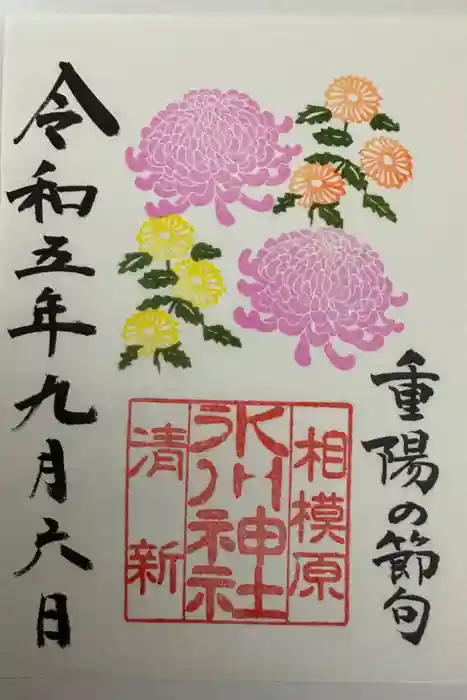 重陽の節句
相模原
氷川神社
清新
令和五年九月六日